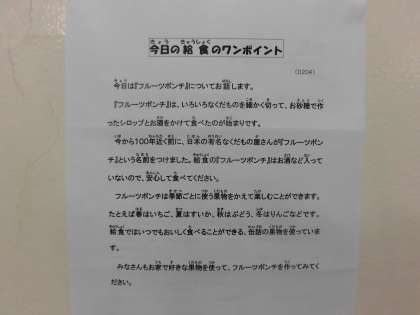 今日の給食のワンポイント
(0204)
今日は『フルーツポンチ』についてお話します。
『フルーツポンチ』は、いろいろなくだものを細かく切って、お砂糖で作
ったシロップとお酒をかけて食べたのが始まりです。
今から100年近く前に、日本の有名なくだもの屋さんが『フルーツポン
チ』という名前をつけました。給食の『フルーツポンチ』はお酒など入って
いないので、安心して食べてください。
フルーツポンチは季節ごとに使う果物をかえて楽しむことができます。
たとえば春はいちご、夏はすいか、秋はぶどう、冬はりんごなどです。
給食ではいつでもおいしく食べることができる、缶詰の果物を使っていま
す。
みなさんもお家で好きな果物を使って、フルーツポンチを作ってみてく
ださい。